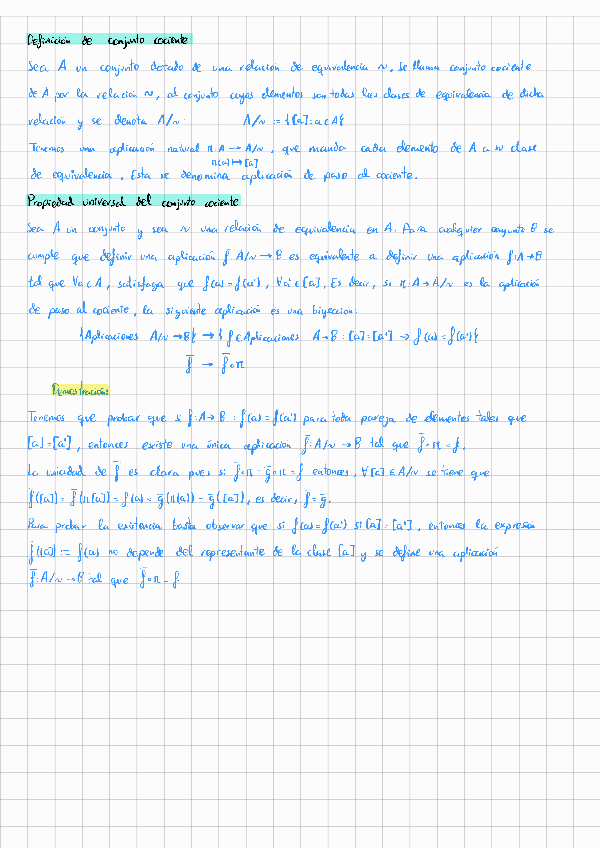 Definición de conjunto cociente
Sea A un conjunto dotado de una relación de equivalencia ~. Se llama conjunto cociente
de A por la relación ~, al conjunto cuyos elementos son todas las clases de equivalencia de dicha
relación y se denota A/~. A/~ := {[a] : a ∈ A}
Tenemos una aplicación natural π: A → A/~, que manda cada elemento de A a su clase
π(a) ↦ [a]
de equivalencia. Esta se denomina aplicación de paso al cociente.
Propiedad universal del conjunto cociente
Sea A un conjunto y sea ~ una relación de equivalencia en A. Para cualquier conjunto B se
cumple que definir una aplicación f̄: A/~ → B es equivalente a definir una aplicación f: A → B
tal que ∀a ∈ A, satisfaga que f(a) = f(a'), ∀a' ∈ [a]. Es decir, si π: A → A/~ es la aplicación
de paso al cociente, la siguiente aplicación es una biyección:
{Aplicaciones A/~ → B} → {f ∈ Aplicaciones A → B : [a] = [a'] → f(a) = f(a')}
f̄ → f̄ ∘ π
Demostración:
Tenemos que probar que si f: A → B : f(a) = f(a') para toda pareja de elementos tales que
[a] = [a'], entonces existe una única aplicación f̄: A/~ → B tal que f̄ ∘ π = f.
La unicidad de f̄ es clara pues si f̄ ∘ π = ḡ ∘ π = f entonces, ∀[a] ∈ A/~ se tiene que
f̄([a]) = f̄(π[a]) = f(a) = ḡ(π(a)) = ḡ([a]), es decir, f̄ = ḡ.
Para probar la existencia basta observar que si f(a) = f(a') si [a] = [a'], entonces la expresión
f̄([a]) := f(a) no depende del representante de la clase [a] y se define una aplicación
f̄: A/~ → B tal que f̄ ∘ π = f